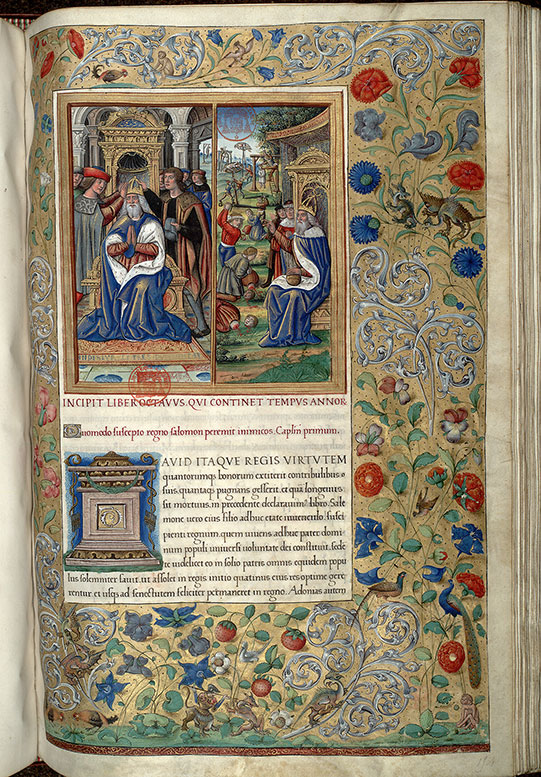 INCIPIT LIBER OCTAVUS, QUI CONTINET TEMPUS ANNOR
Quomodo suscepto regno salomon peremit inimicos. Caplm primum.
DAVID ITAQVE REGIS VIRTVTEM
quantorumq; bonorum extiterit contribulibus
suis, quantaq; pugnans gesserit, et qua longeuus
sit mortuus, in precedente declarauim9 libro. Salo
mone uero eius filio adhuc etate iuuenculo, susci
pienti regnum, quem uiuens adhuc pater domi
num populi uniuersi uoluntate dei constituit, sede
te uidelicet eo in solio patris, omnis equidem popu
lus solemniter fauit, ut assolet in regis initio quatinus eius res optime gere
rentur, et usq; ad senectutem feliciter permaneret in regno. Adonias autem